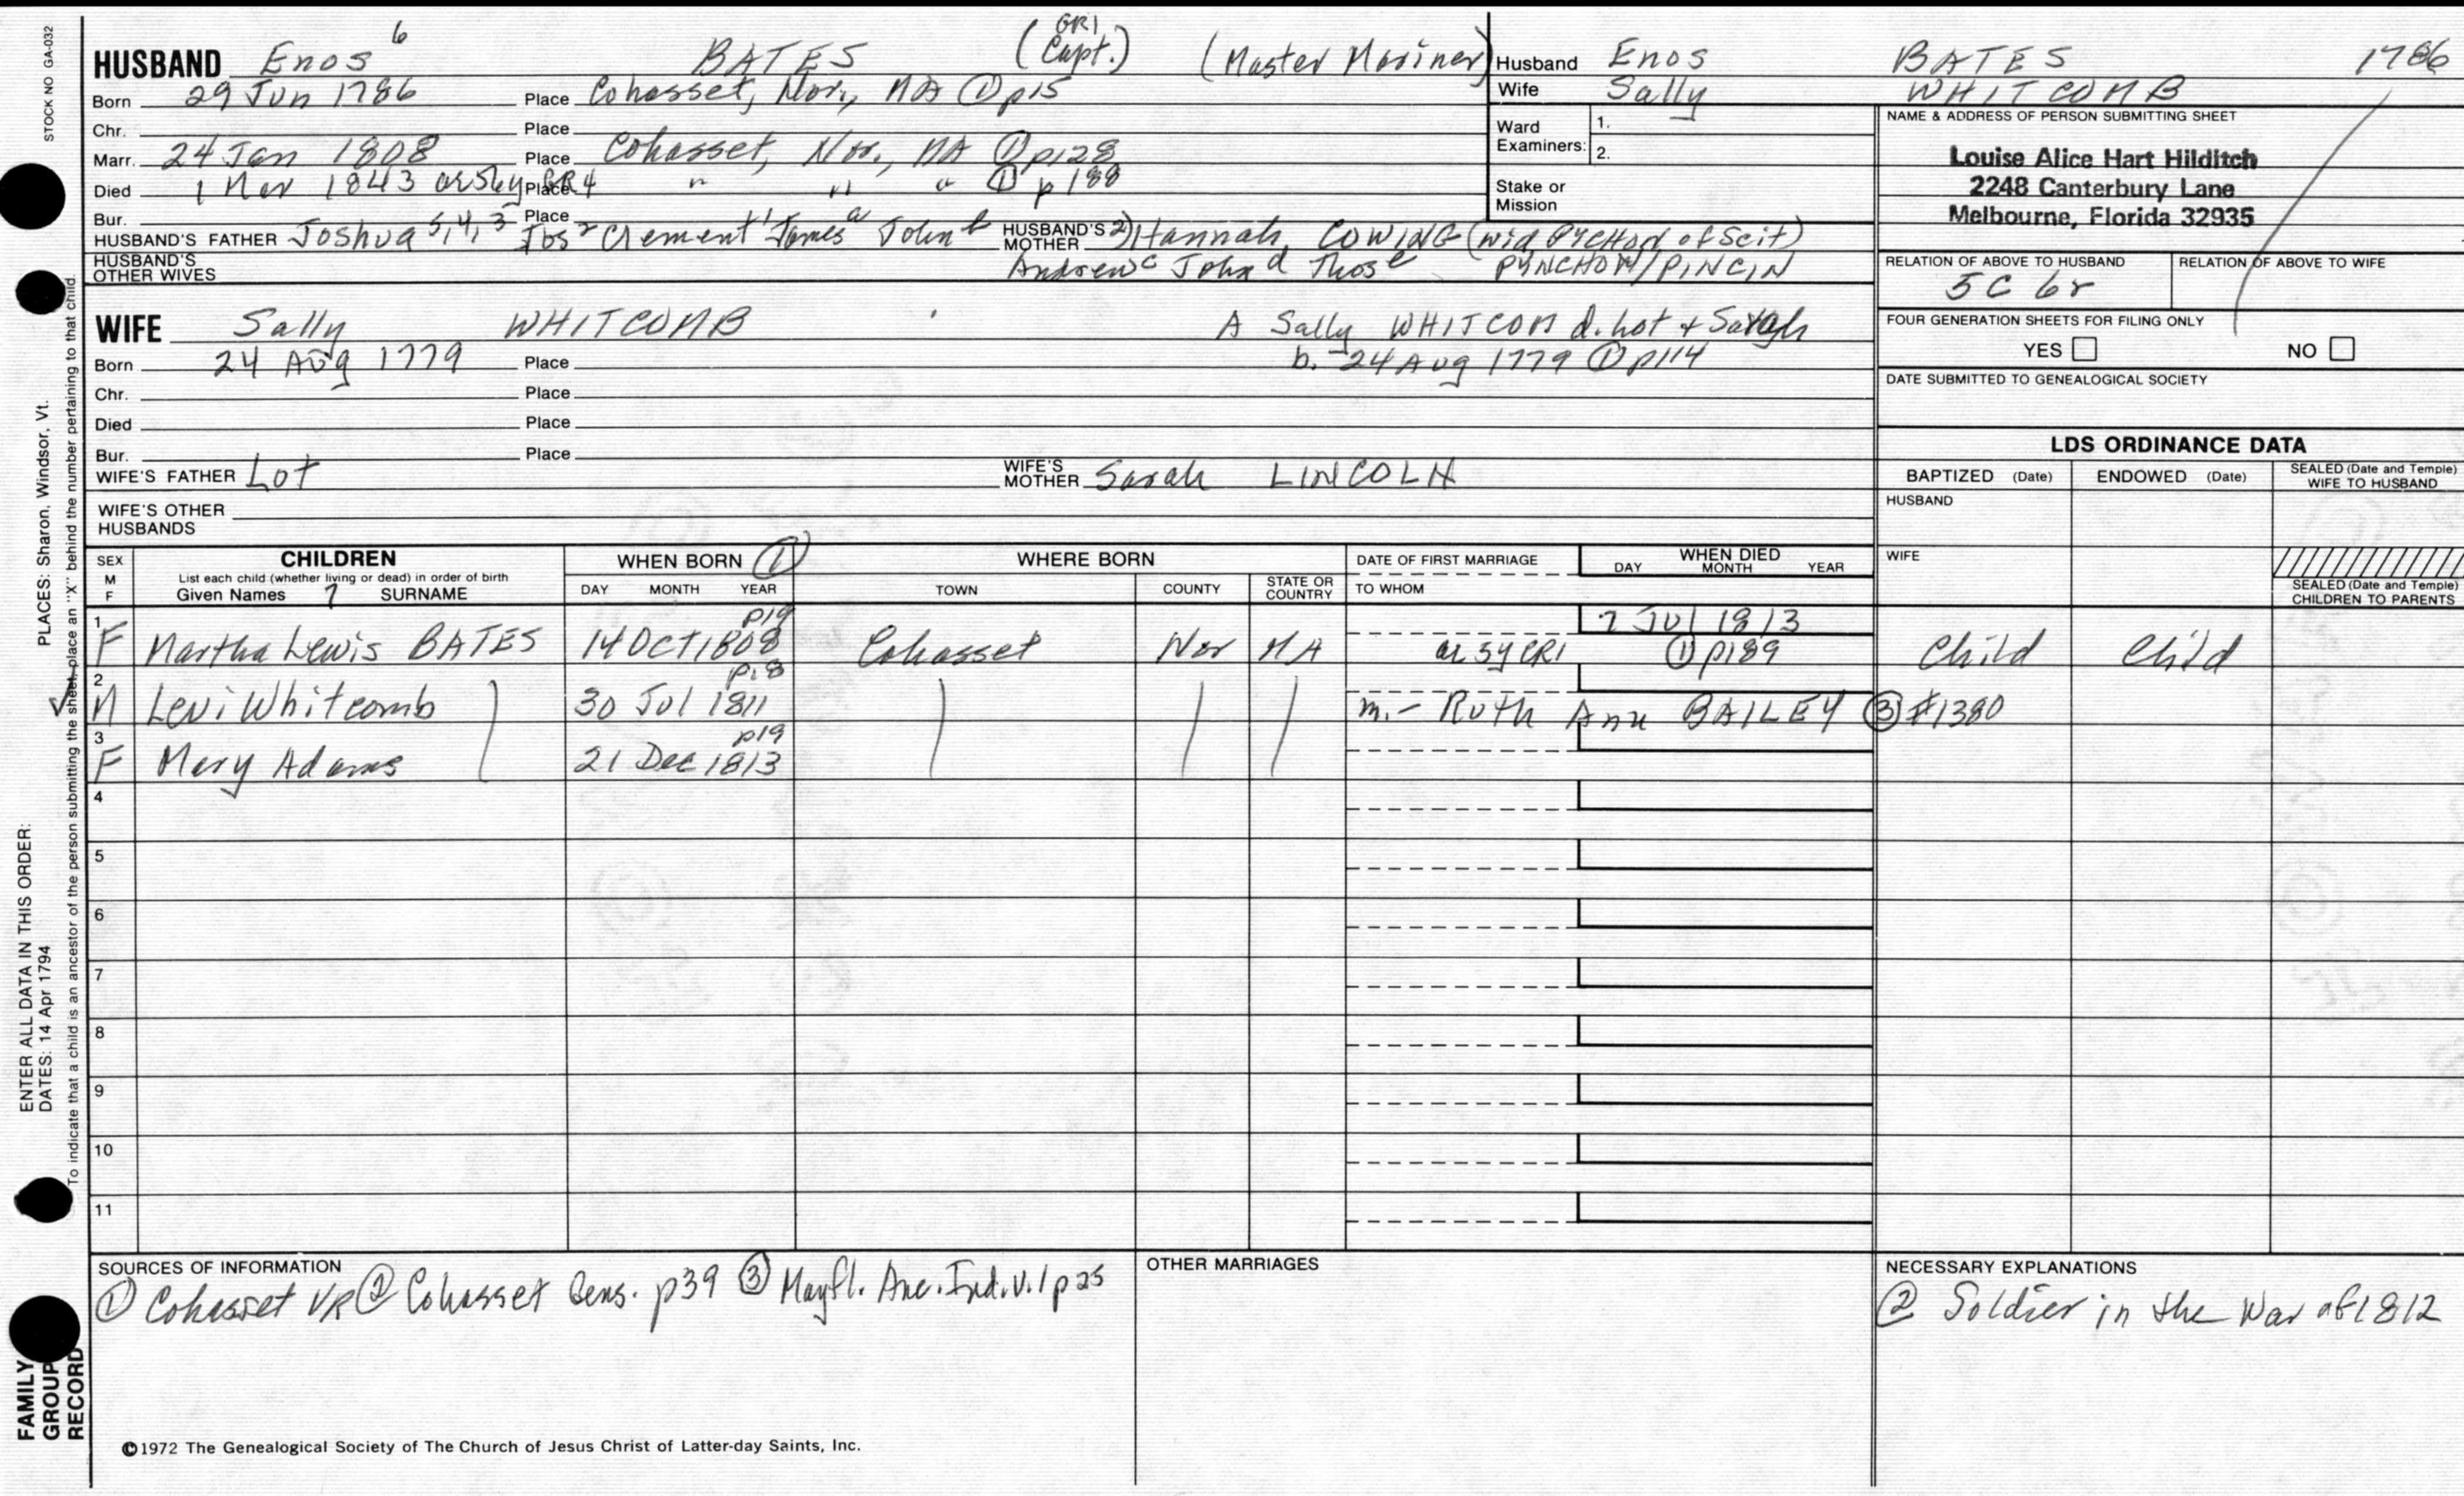 STOCK NO GA-032
HUSBAND Enos 6 BATES GR1 (Capt.) (Master Mariner)
Born 29 Jun 1786 Place Cohasset, Nor., MA ① p15
Chr. Place
Marr. 24 Jan 1808 Place Cohasset, Nor., MA ① p128
Died 1 Mar 1843 ae 56y GR4 Place " " " ① p188
Bur. Place
HUSBAND'S FATHER Joshua 5,4,3 Jos 2 Clement 1 James a John b HUSBAND'S MOTHER 2) Hannah COWING (wid PYCHON of Scit)
HUSBAND'S OTHER WIVES Andrew c John d Thos e PYNCHON/PINCIN
Husband Enos BATES 1786
Wife Sally WHITCOMB
Ward Examiners: 1.
2.
Stake or Mission
NAME & ADDRESS OF PERSON SUBMITTING SHEET
Louise Alice Hart Hilditch
2248 Canterbury Lane
Melbourne, Florida 32935
RELATION OF ABOVE TO HUSBAND RELATION OF ABOVE TO WIFE
5C 6r
FOUR GENERATION SHEETS FOR FILING ONLY
YES NO
DATE SUBMITTED TO GENEALOGICAL SOCIETY
WIFE Sally WHITCOMB A Sally WHITCOM d. Lot + Sarah
Born 24 Aug 1779 Place b. 24 Aug 1779 ① p114
Chr. Place
Died Place
Bur. Place
WIFE'S FATHER Lot WIFE'S MOTHER Sarah LINCOLN
WIFE'S OTHER HUSBANDS
LDS ORDINANCE DATA
BAPTIZED (Date) ENDOWED (Date) SEALED (Date and Temple) WIFE TO HUSBAND
HUSBAND
WIFE
SEALED (Date and Temple) CHILDREN TO PARENTS
SEX M F
CHILDREN
List each child (whether living or dead) in order of birth
Given Names 7 SURNAME
WHEN BORN ①
DAY MONTH YEAR
WHERE BORN
TOWN COUNTY STATE OR COUNTRY
DATE OF FIRST MARRIAGE
TO WHOM
WHEN DIED
DAY MONTH YEAR
1 p19 7 Jul 1813
F Martha Lewis BATES 14 OCT 1808 Cohasset Nor MA ae 5y CR1 ① p189 Child Child
2 p18
M Levi Whitcomb 30 Jul 1811 m.- Ruth Ann BAILEY ③ #1380
3 p19
F Mary Adams 21 Dec 1813
4
5
6
7
8
9
10
11
SOURCES OF INFORMATION
① Cohasset VR ② Cohasset Gens. p39 ③ Mayfl. Anc. Ind. v.1 p25
OTHER MARRIAGES
NECESSARY EXPLANATIONS
② Soldier in the War of 1812
©1972 The Genealogical Society of The Church of Jesus Christ of Latter-day Saints, Inc.
FAMILY GROUP RECORD
ENTER ALL DATA IN THIS ORDER:
DATES: 14 Apr 1794 PLACES: Sharon, Windsor, Vt.
To indicate that a child is an ancestor of the person submitting the sheet, place an "X" behind the number pertaining to that child.